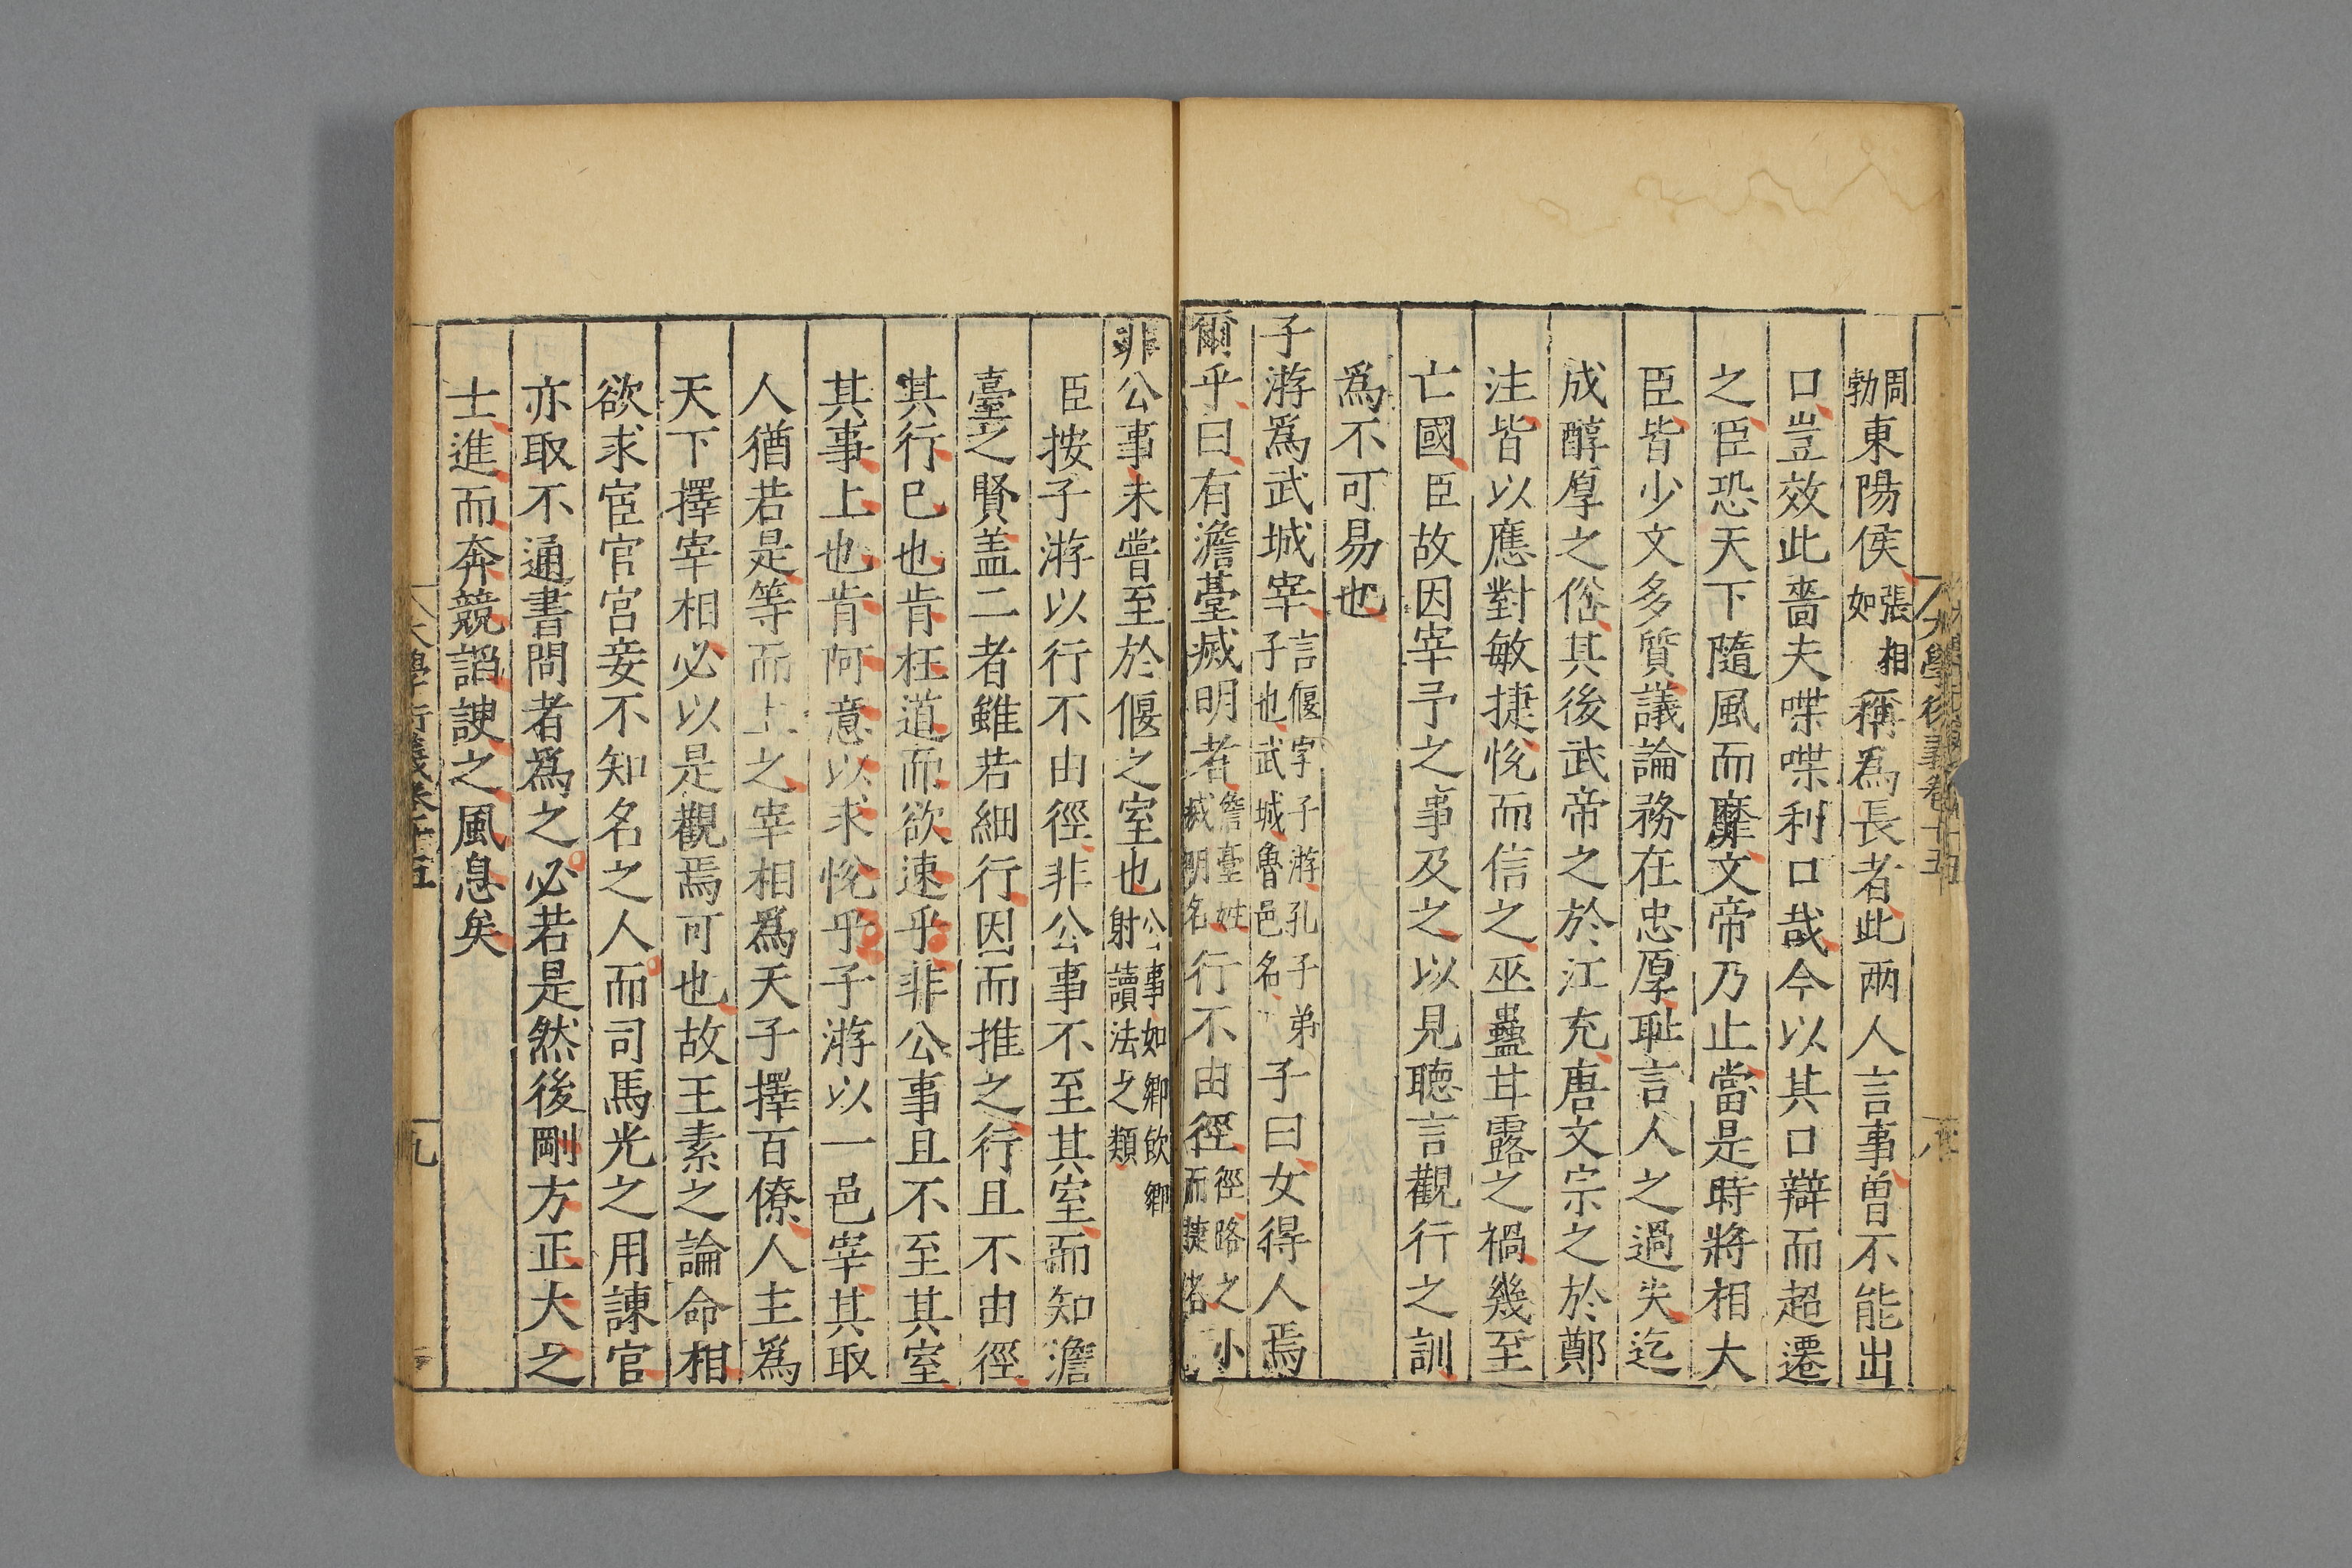 周勃東陽侯張相如稱爲長者此兩人言事曾不能出
口豈效此嗇夫喋喋利口哉今以其口辯而超遷
之臣恐天下隨風而靡文帝乃止當是時將相大
臣皆少文多質議論務在忠厚恥言人之過失迄
成醇厚之俗其後武帝之於江充唐文宗之於鄭
注皆以應對敏捷悅而信之巫蠱甘露之禍幾至
亡國臣故因宰予之事及之以見聽言觀行之訓
爲不可易也
子游爲武城宰言偃字子游孔子弟子也武城魯邑名子曰女得人焉
爾乎曰有澹臺滅明者澹臺姓滅明名行不由徑徑路之小而捷者
非公事未嘗至於偃之室也公事如鄉飲鄉射讀法之類
臣按子游以行不由徑非公事不至其室而知澹
臺之賢盖二者雖若細行因而推之行且不由徑
其行已也肯枉道而欲速乎非公事且不至其室
其事上也肯阿意以求悅乎子游以一邑宰其取
人猶若是等而上之宰相爲天子擇百僚人主爲
天下擇宰相必以是觀焉可也故王素之論命相
欲求宦官宮妾不知名之人而司馬光之用諫官
亦取不通書問者爲之必若是然後剛方正大之
士進而奔競諂諛之風息矣
大學衍義卷十五
九